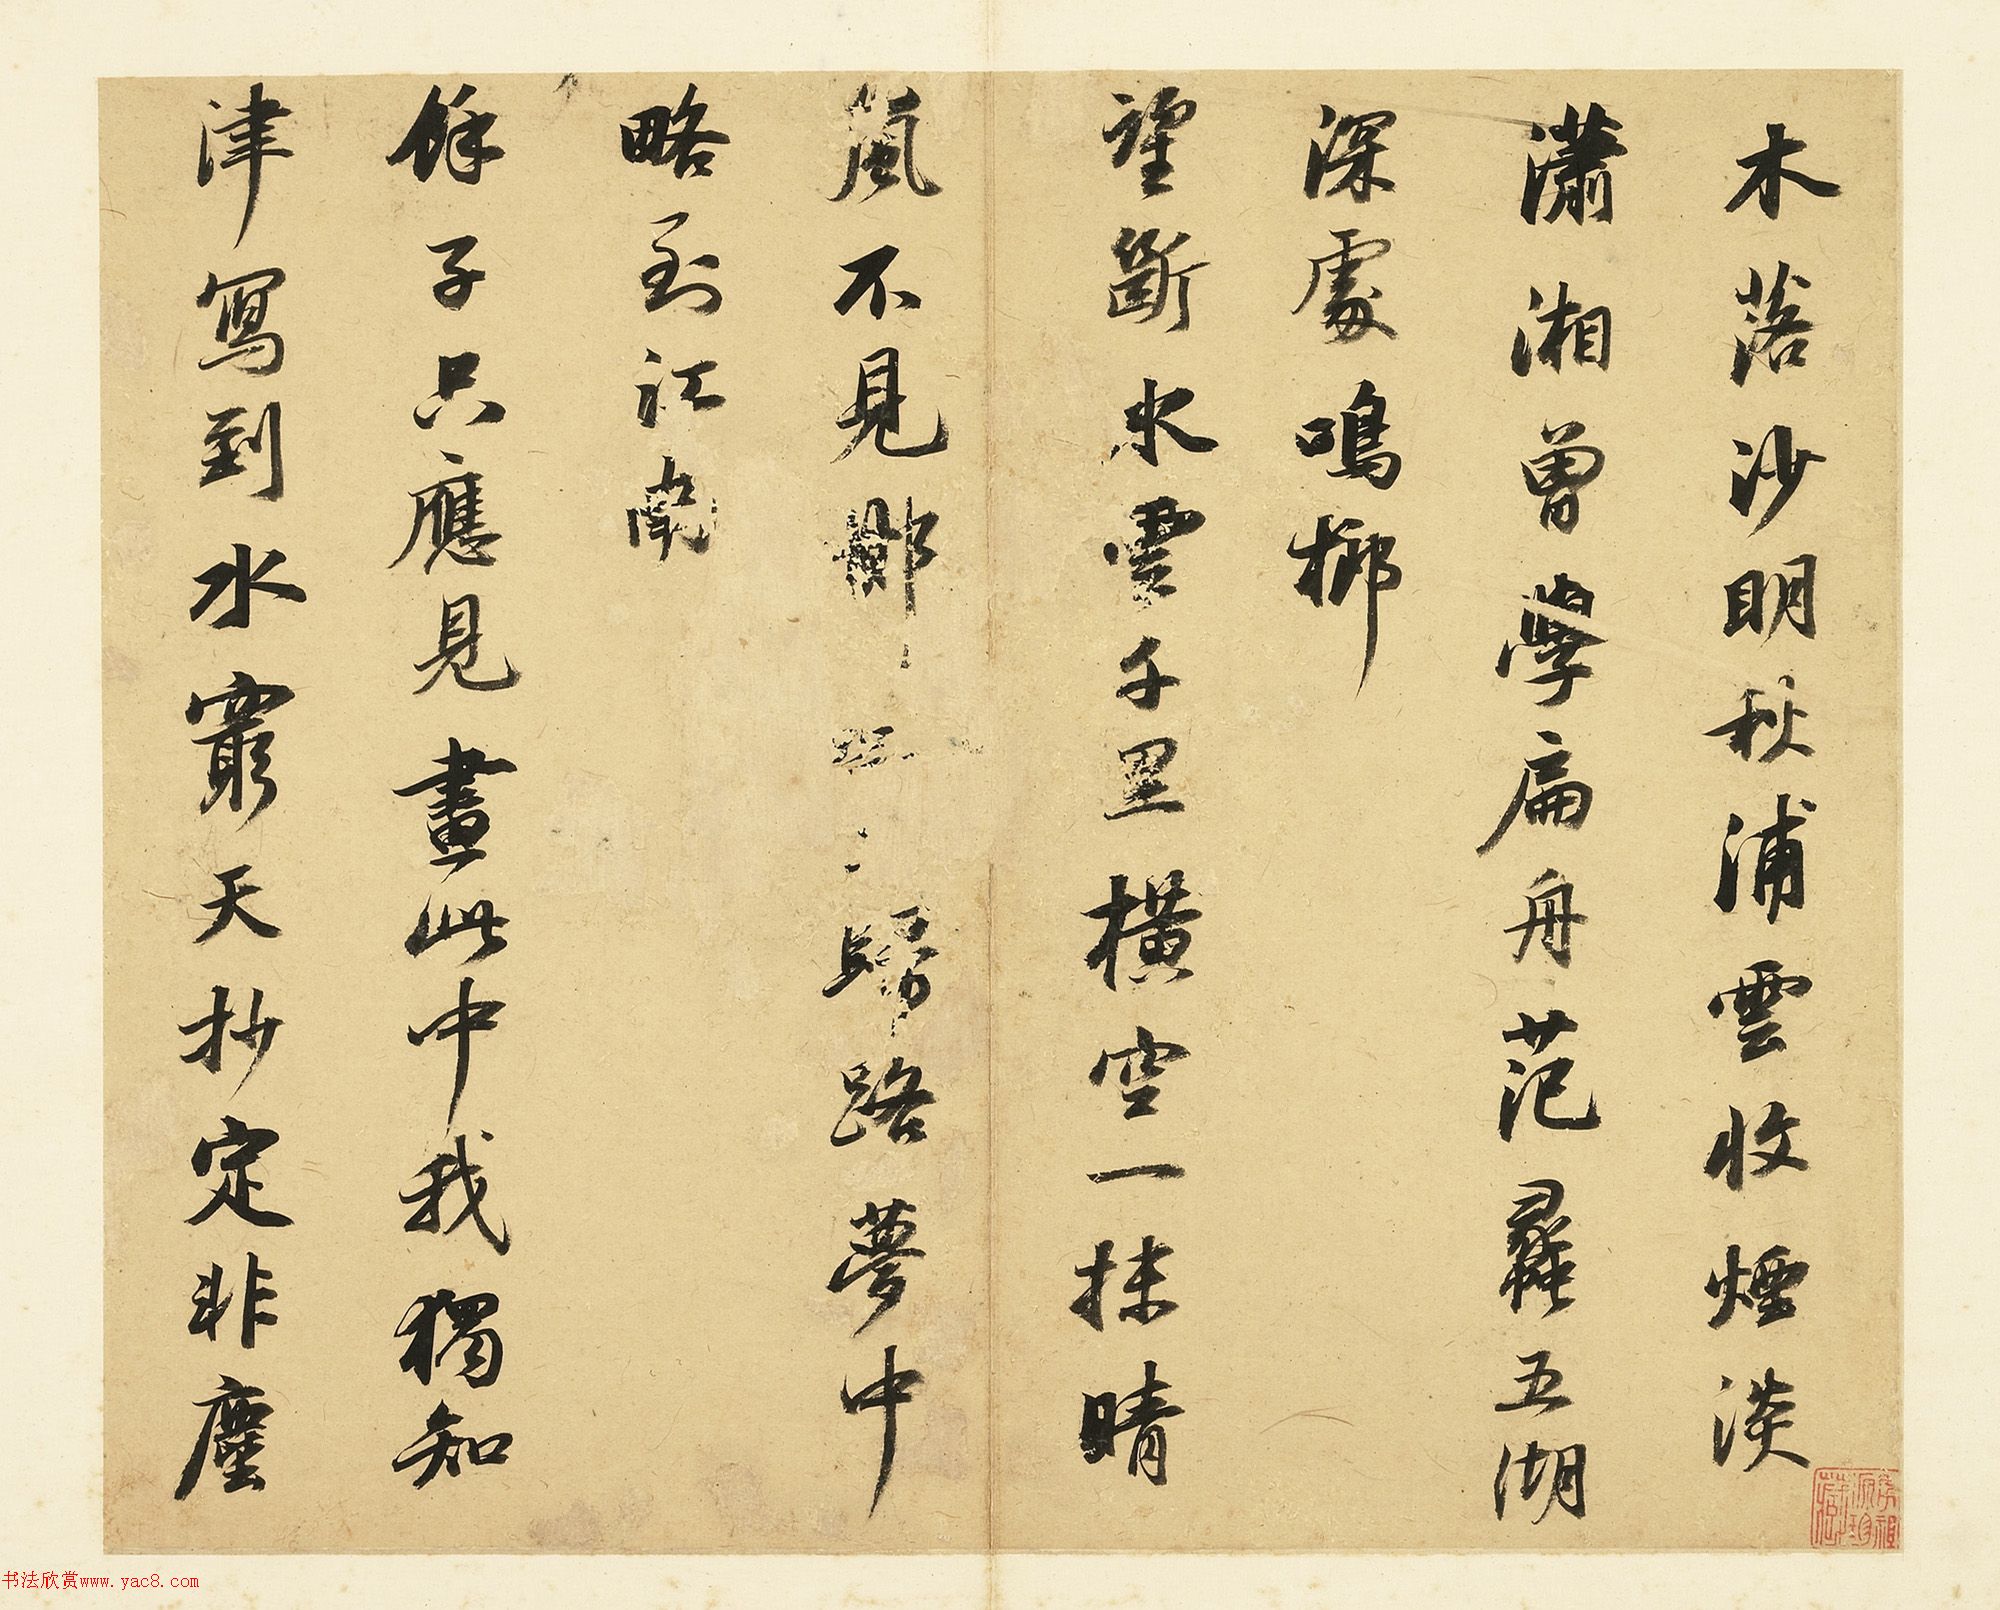 木落沙明秋浦雲收煙淡
瀟湘曾學扁舟范蠡五湖
深處鳴榔
望斷水雲千里橫空一抹晴
嵐不見邯歸路夢中
略到江南
餘子只應見畫此中我獨知
津寫到水窮天抄定非塵
书法欣赏www.yac8.com